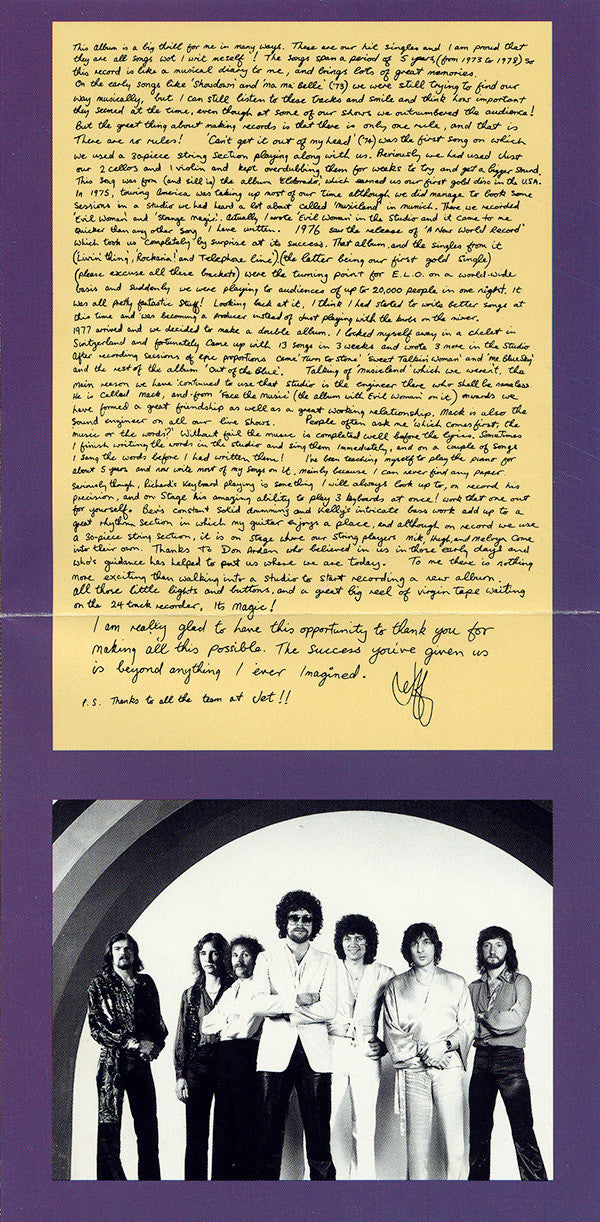 This album is a big thrill for me in many ways. These are our hit singles and I am proud that
they are all songs wot I writ meself! The songs span a period of 5 years, (from 1973 to 1978) so
this record is like a musical diary to me, and brings lots of great memories.
On the early songs like 'Showdown' and 'ma ma Belle' ('73) we were still trying to find our
way musically, but I can still listen to these tracks and smile and think how important
they seemed at the time, even though at some of our shows we outnumbered the audience!
But the great thing about making records is that there is only one rule, and that is
There are no rules! 'Can't get it out of my head' ('74) was the first song on which
we used a 30 piece string section playing along with us. Previously we had used just
our 2 cellos and 1 violin and kept overdubbing them for weeks to try and get a bigger sound.
This song was from (and still is) the album 'Eldorado', which earned us our first gold disc in the U.S.A.
In 1975, touring America was taking up most of our time although we did manage to book some
sessions in a studio we had heard a lot about called 'Musicland' in Munich. There we recorded
'Evil Woman' and 'Strange Magic'. Actually I wrote 'Evil Woman' in the studio and it came to me
quicker than any other song I have written. 1976 saw the release of 'A New World Record'
which took us completely by surprise at its success. That album, and the singles from it
(Livin' thing, 'Rockaria! and Telephone line') (the latter being our first gold single)
(please excuse all these brackets) were the turning point for E.L.O. on a world-wide
basis and suddenly we were playing to audiences of up to 20,000 people in one night. It
was all pretty fantastic stuff! Looking back at it, I think I had started to write better songs at
this time and was becoming a producer instead of just playing with the knobs on the mixer.
1977 arrived and we decided to make a double album. I locked myself away in a chalet in
Switzerland and fortunately came up with 13 songs in 3 weeks and wrote 3 more in the studio
After recording sessions of epic proportions came 'Turn to Stone' 'Sweet Talkin' Woman' and 'Mr. Blue Sky'
and the rest of the album 'Out of the Blue'. Talking of 'Musicland' which we weren't, the
main reason we have continued to use that studio is the engineer there who shall be nameless
He is called Mack, and from 'Face the Music' (the album with Evil Woman on it) onwards we
have formed a great friendship as well as a great working relationship. Mack is also the
sound engineer on all our live shows. People often ask me 'which comes first; the
music or the words?' Without fail the music is completed well before the lyrics. Sometimes
I finish writing the words in the studio and sing them immediately, and on a couple of songs
I sang the words before I had written them! I've been teaching myself to play the piano for
about 5 years and now write most of my songs on it, mainly because I can never find any paper.
Seriously though, Richard's keyboard playing is something I will always look up to, on record his
precision, and on stage his amazing ability to play 3 keyboards at once! work that one out
for yourself. Bev's constant solid drumming and Kelly's intricate bass work add up to a
great rhythm section in which my guitar enjoys a place, and although on record we use
a 30-piece string section, it is on stage where our string players Mik, Hugh, and Melvyn come
into their own. Thanks to Don Arden who believed in us in those early days and
who's guidance has helped to put us where we are today. To me there is nothing
more exciting than walking into a studio to start recording a new album.
all those little lights and buttons, and a great big reel of virgin tape waiting
on the 24 track recorder, Its magic!
I am really glad to have this opportunity to thank you for
making all this possible. The success you've given us
is beyond anything I ever Imagined.
Jeff
P.S. Thanks to all the team at Jet!!